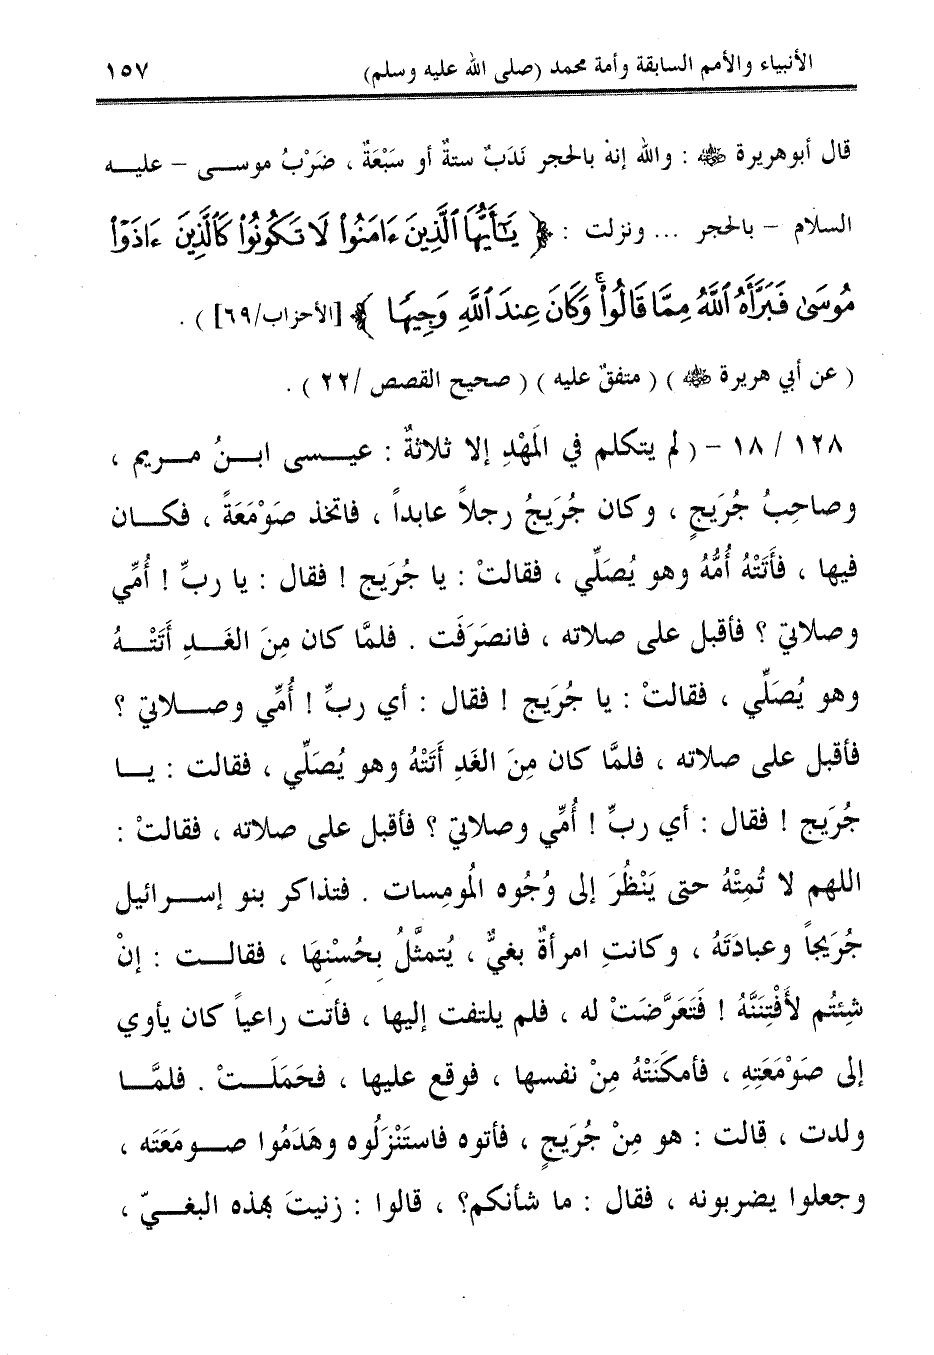 الأنبياء والأمم السابقة وأمة محمد (صلى الله عليه وسلم) ١٥٧
قال أبوهريرة ﵁ : والله إنهْ بالحجر نَدَبٌ ستةٌ أو سَبْعَةٌ ، ضَرْبُ موسى – عليه
السلام – بالحجر ... ونزلت : ﴿ يَـٰٓأَيُّهَا ٱلَّذِينَ ءَامَنُوا۟ لَا تَكُونُوا۟ كَٱلَّذِينَ ءَاذَوْا۟
مُوسَىٰ فَبَرَّأَهُ ٱللَّهُ مِمَّا قَالُوا۟ ۚ وَكَانَ عِندَ ٱللَّهِ وَجِيهًا ﴾ [الأحزاب/٦٩] ) .
( عن أبي هريرة ﵁ ) ( متفقٌ عليه ) ( صحيح القصص /٢٢ ) .
١٢٨ / ١٨ – ( لم يتكلم في المَهْدِ إلا ثلاثةٌ : عيسى ابنُ مريم ،
وصاحِبُ جُرَيجٍ ، وكان جُرَيجُ رجلاً عابداً ، فاتخذ صَوْمَعَةً ، فكان
فيها ، فأَتَتْهُ أُمُّهُ وهو يُصَلِّي ، فقالتْ : يا جُرَيج ! فقال : يا ربِّ ! أُمِّي
وصلاتي ؟ فأقبل على صلاته ، فانصَرَفَت . فلمَّا كان مِنَ الغَدِ أَتَتْهُ
وهو يُصَلِّي ، فقالتْ : يا جُرَيج ! فقال : أي ربِّ ! أُمِّي وصلاتي ؟
فأقبل على صلاته ، فلمَّا كان مِنَ الغَدِ أَتَتْهُ وهو يُصَلِّي ، فقالت : يا
جُرَيج ! فقال : أي ربِّ ! أُمِّي وصلاتي ؟ فأقبل على صلاته ، فقالتْ :
اللهم لا تُمِتْهُ حتى يَنْظُرَ إلى وُجُوه المُومِسات . فتذاكر بنو إسرائيل
جُرَيجاً وعبادَتَهُ ، وكانتِ امرأةٌ بغيٌّ ، يُتمثَّلُ بِحُسْنِهَا ، فقالت : إنْ
شِئتُم لأَفْتِنَنَّهُ ! فَتَعَرَّضَتْ له ، فلم يلتفت إليها ، فأتت راعياً كان يأوي
إلى صَوْمَعَتِهِ ، فأمكَنَتْهُ مِنْ نفسها ، فوقع عليها ، فحَمَلَتْ . فلمَّا
ولدت ، قالت : هو مِنْ جُرَيجٍ ، فأتوه فاستَنْزَلُوه وهَدَمُوا صومَعَتَه ،
وجعلوا يضربونه ، فقال : ما شأنكم؟ ، قالوا : زنيتَ بهذه البغيّ ،